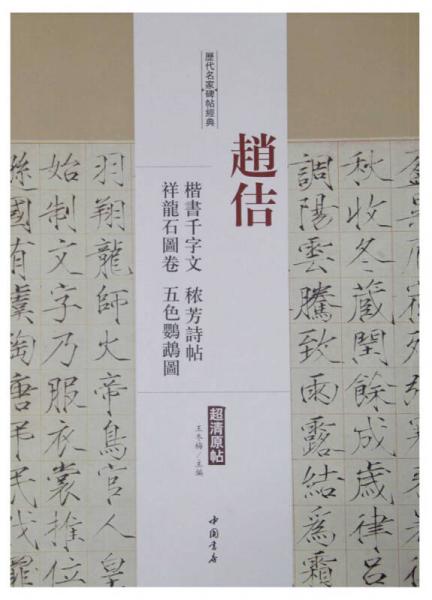 歷代名家碑帖經典
趙佶
楷書千字文 穠芳詩帖
祥龍石圖卷 五色鸚鵡圖
超清原帖
王冬梅／主編
中国書店
秋收冬藏閏餘成歲律呂
調陽雲騰致雨露結爲霜
羽翔龍師火帝鳥官人皇
始制文字乃服衣裳推位
遜國有虞陶唐弔民伐罪